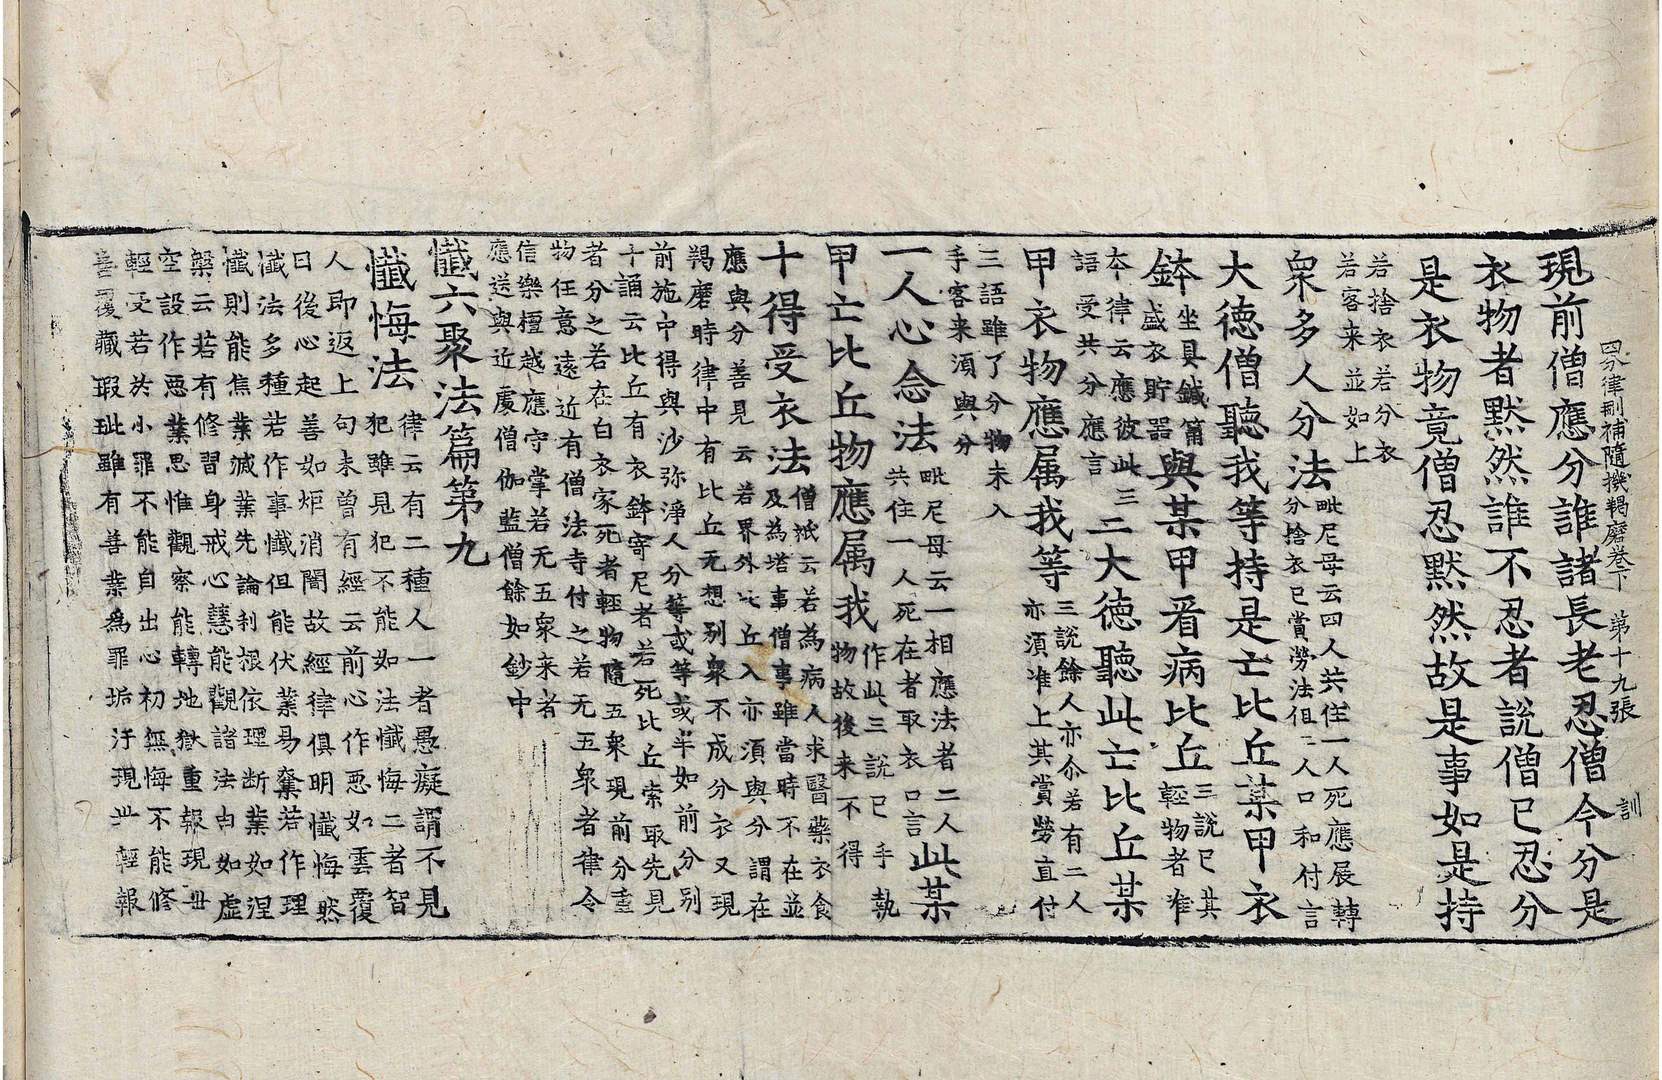 四分律刪補隨機羯磨卷下　第十九張　訓
現前僧應分誰諸長老忍僧今分是
衣物者默然誰不忍者說僧已忍分
是衣物竟僧忍默然故是事如是持
若捨衣若分衣
若客来並如上
衆多人分法　毗尼母云四人共住一人死應展轉
分捨衣已賞勞法但二人口和付言
大徳僧聽我等持是亡比丘某甲衣
鉢　坐具鍼筩
盛衣貯器　與某甲看病比丘　三說已其
輕物者准
夲律云應彼此三
語受共分應言　二大徳聽此亡比丘某
甲衣物應属我等　三說餘人亦尒若有二人
亦須准上其賞勞直付
三語雖了分物未入
手客来須與分
一人心念法　毗尼母云一相應法者二人
共住一人死在者取衣口言　此某
甲亡比丘物應属我　作此三說已手執
物故後来不得
十得受衣法　僧祇云若為病人求醫藥衣食
及為塔事僧事雖當時不在並
應與分善見云若界外比丘入亦須與分謂在
羯磨時律中有比丘无想别衆不成分衣又現
前施中得與沙弥淨人分等或等或半如前分别
十誦云比丘有衣鉢寄尼者若死比丘索取先見
者分之若在白衣家死者輕物隨五衆現前分重
物任意遠近有僧法寺付之若无五衆者律令
信樂檀越應守掌若无五衆来者
應送與近處僧伽藍僧餘如鈔中
懺六聚法篇第九
懺悔法　律云有二種人一者愚癡謂不見
犯雖見犯不能如法懺悔二者智
人即返上句未曾有經云前心作惡如雲覆
日後心起善如炬消闇故經律俱明懺悔然
懺法多種若作事懺但能伏業易奪若作理
懺則能焦業滅業先論利根依理断業如涅
槃云若有修習身戒心慧能觀諸法由如虛
空設作惡業思惟觀察能轉地獄重報現世
輕受若於小罪不能自出心初無悔不能修
善覆藏瑕玼雖有善業為罪垢汙現世輕報